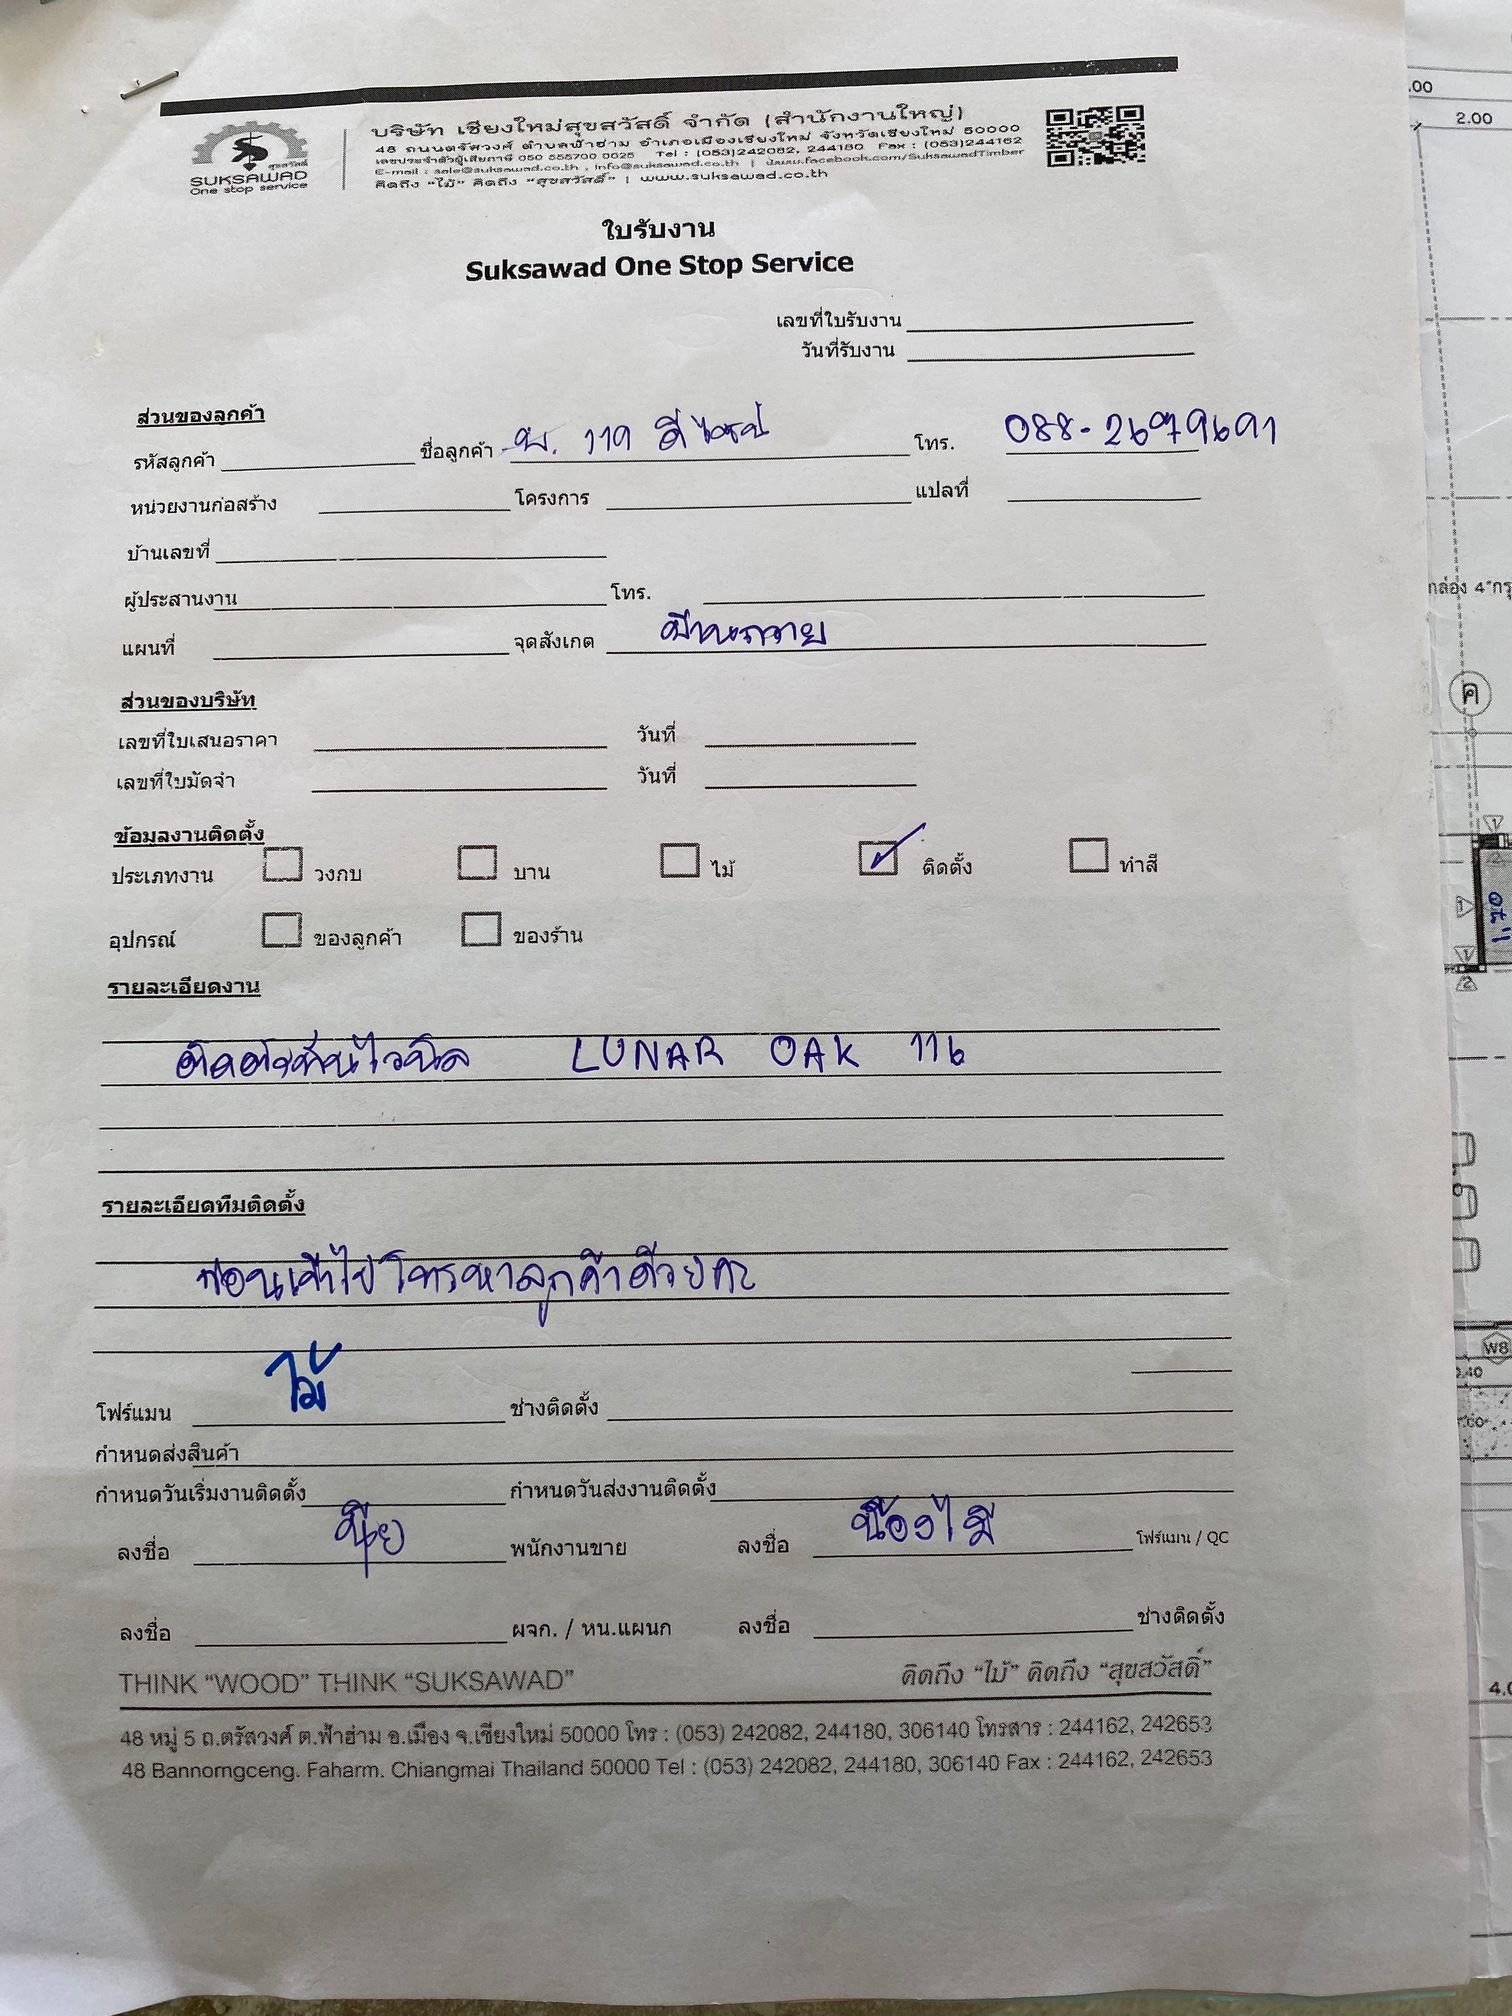 บริษัท เชียงใหม่สุขสวัสดิ์ จำกัด (สำนักงานใหญ่)
48 ถนนตรัสวงศ์ ตำบลฟ้าฮ่าม อำเภอเมืองเชียงใหม่ จังหวัดเชียงใหม่ 50000
เลขประจำตัวผู้เสียภาษี 050 555700 0025 Tel : (053)242082, 244180 Fax : (053)244162
E-mail : sale@suksawad.co.th , info@suksawad.co.th | www.facebook.com/SuksawadTimber
คิดถึง “ไม้” คิดถึง “สุขสวัสดิ์” | www.suksawad.co.th
สุขสวัสดิ์
SUKSAWAD
One stop service
ใบรับงาน
Suksawad One Stop Service
เลขที่ใบรับงาน
วันที่รับงาน
ส่วนของลูกค้า
รหัสลูกค้า ชื่อลูกค้า 119 ดีไซน์ โทร. 088-2679691
หน่วยงานก่อสร้าง โครงการ แปลที่
บ้านเลขที่
ผู้ประสานงาน โทร.
แผนที่ จุดสังเกต บ้านถวาย
ส่วนของบริษัท
เลขที่ใบเสนอราคา วันที่
เลขที่ใบมัดจำ วันที่
ข้อมูลงานติดตั้ง
ประเภทงาน วงกบ บาน ไม้ ติดตั้ง ทำสี
อุปกรณ์ ของลูกค้า ของร้าน
รายละเอียดงาน
ติดตั้งพื้นไวนิล LUNAR OAK 116
รายละเอียดทีมติดตั้ง
ก่อนเข้าไปโทรหาลูกค้าด้วยคะ
โฟร์แมน ไม้ ช่างติดตั้ง
กำหนดส่งสินค้า
กำหนดวันเริ่มงานติดตั้ง กำหนดวันส่งงานติดตั้ง
ลงชื่อ นุ้ย พนักงานขาย ลงชื่อ น้องไม้ โฟร์แมน / QC
ลงชื่อ ผจก. / หน.แผนก ลงชื่อ ช่างติดตั้ง
THINK “WOOD” THINK “SUKSAWAD” คิดถึง “ไม้” คิดถึง “สุขสวัสดิ์”
48 หมู่ 5 ถ.ตรัสวงศ์ ต.ฟ้าฮ่าม อ.เมือง จ.เชียงใหม่ 50000 โทร : (053) 242082, 244180, 306140 โทรสาร : 244162, 242653
48 Bannorngceng. Faharm. Chiangmai Thailand 50000 Tel : (053) 242082, 244180, 306140 Fax : 244162, 242653
.00
2.00
กล่อง 4"กรุ
ค
W8